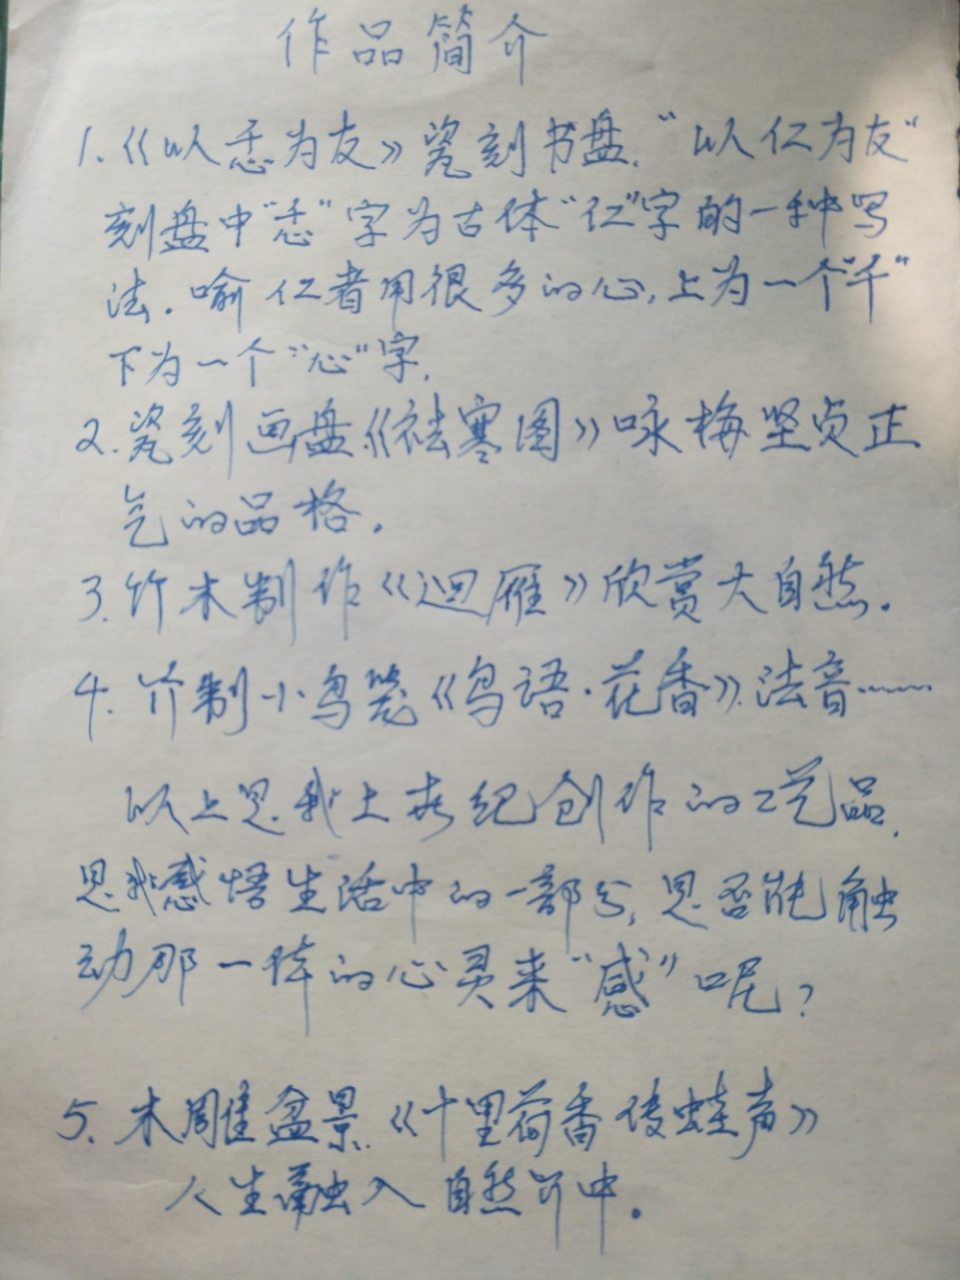 作品简介
1.《以忎为友》瓷刻书盘."以仁为友"
刻盘中"忎"字为古体"仁"字的一种写
法.喻仁者用很多的心,上为一个"千"
下为一个"心"字.
2.瓷刻画盘《祛寒图》咏梅坚贞正
气的品格.
3.竹木制作《迴雁》欣赏大自然.
4.竹制小鸟笼《鸟语·花香》.法音……
以上是我上世纪创作的工艺品.
是我感悟生活中的一部分,是否能触
动那一样的心灵来"感"呢?
5.木雕盆景.《十里荷香传蛙声》
人生融入自然界中。